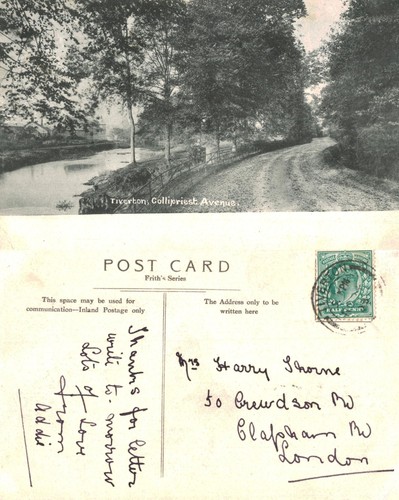 Tiverton, Collipriest Avenue.
POST CARD
Frith's Series
This space may be used for
communication—Inland Postage only
The Address only to be
written here
HALFPENNY
Thanks for letter
write to-morrow
Lots of love
from
Addie
Mrs Harry Thorne
50 Crewdson Rd
Clapham Rd
London